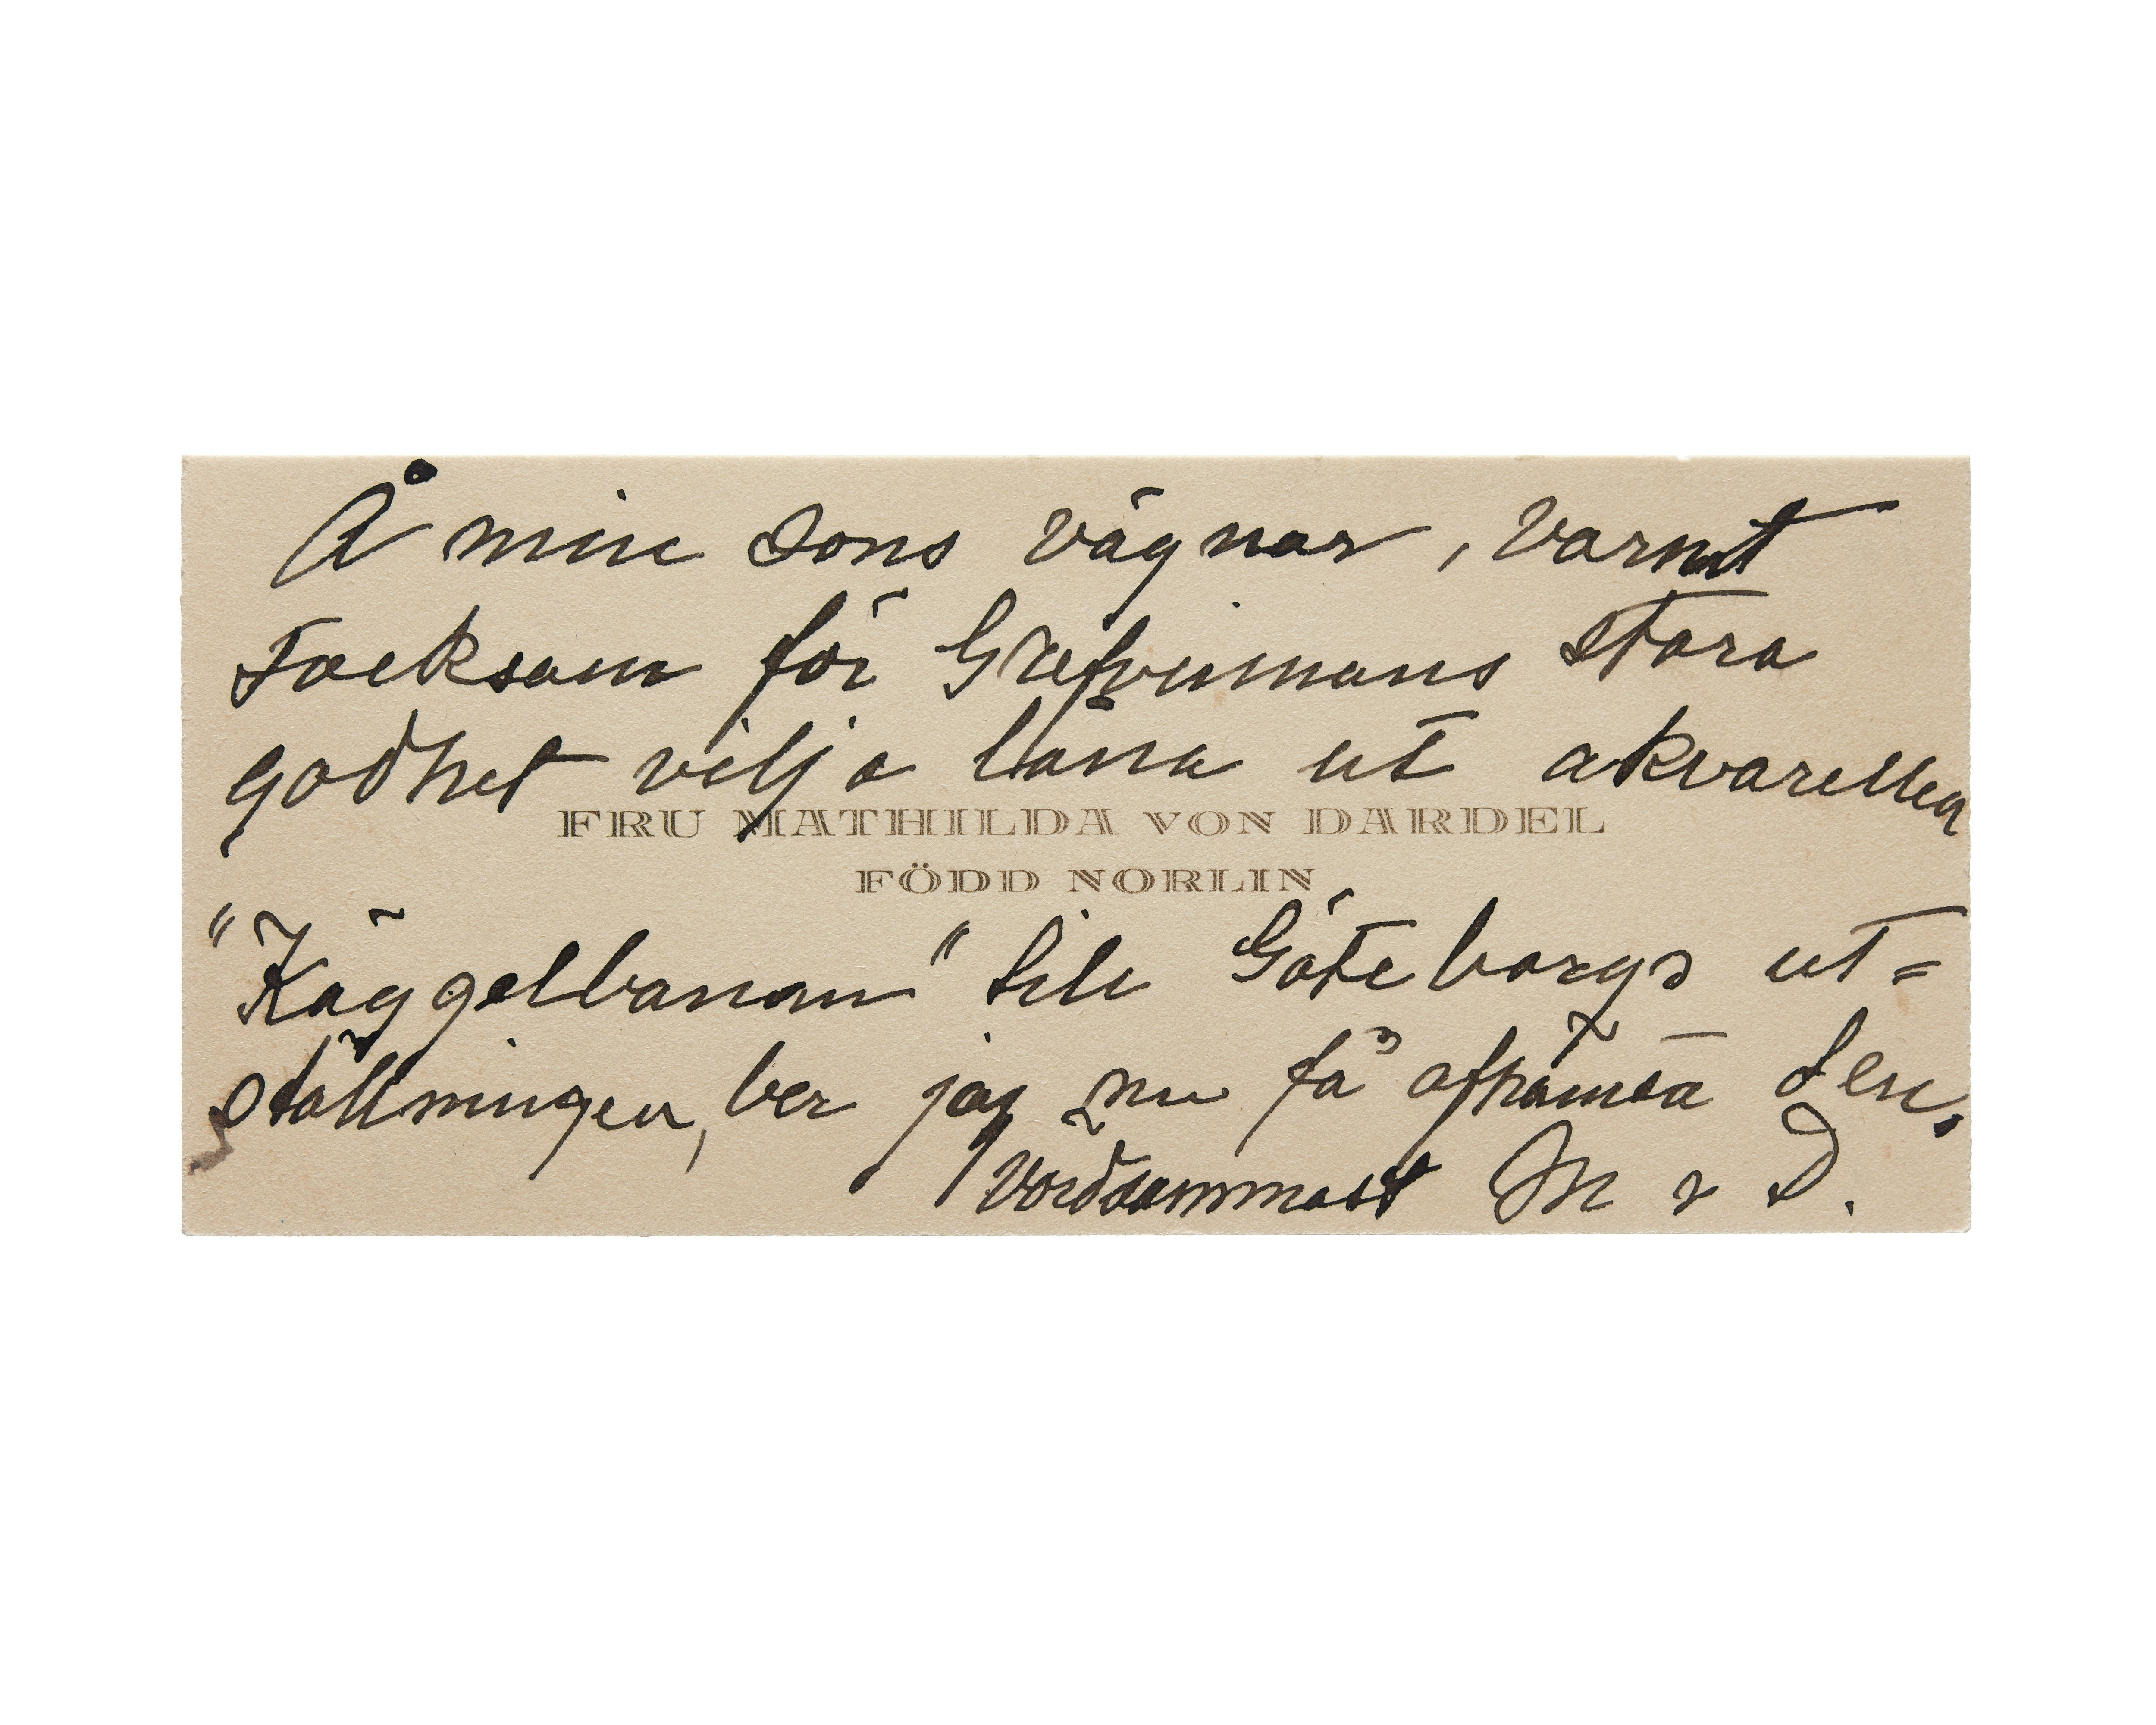 Å min sons vägnar, varmt
tacksam för Grefvinnans stora
godhet vilja låna ut akvarellen
FRU MATHILDA VON DARDEL
FÖDD NORLIN
"Käggelbanan" till Göteborgs ut=
ställningen, ber jag nu få afhämta den,
Vördsammast M v D.